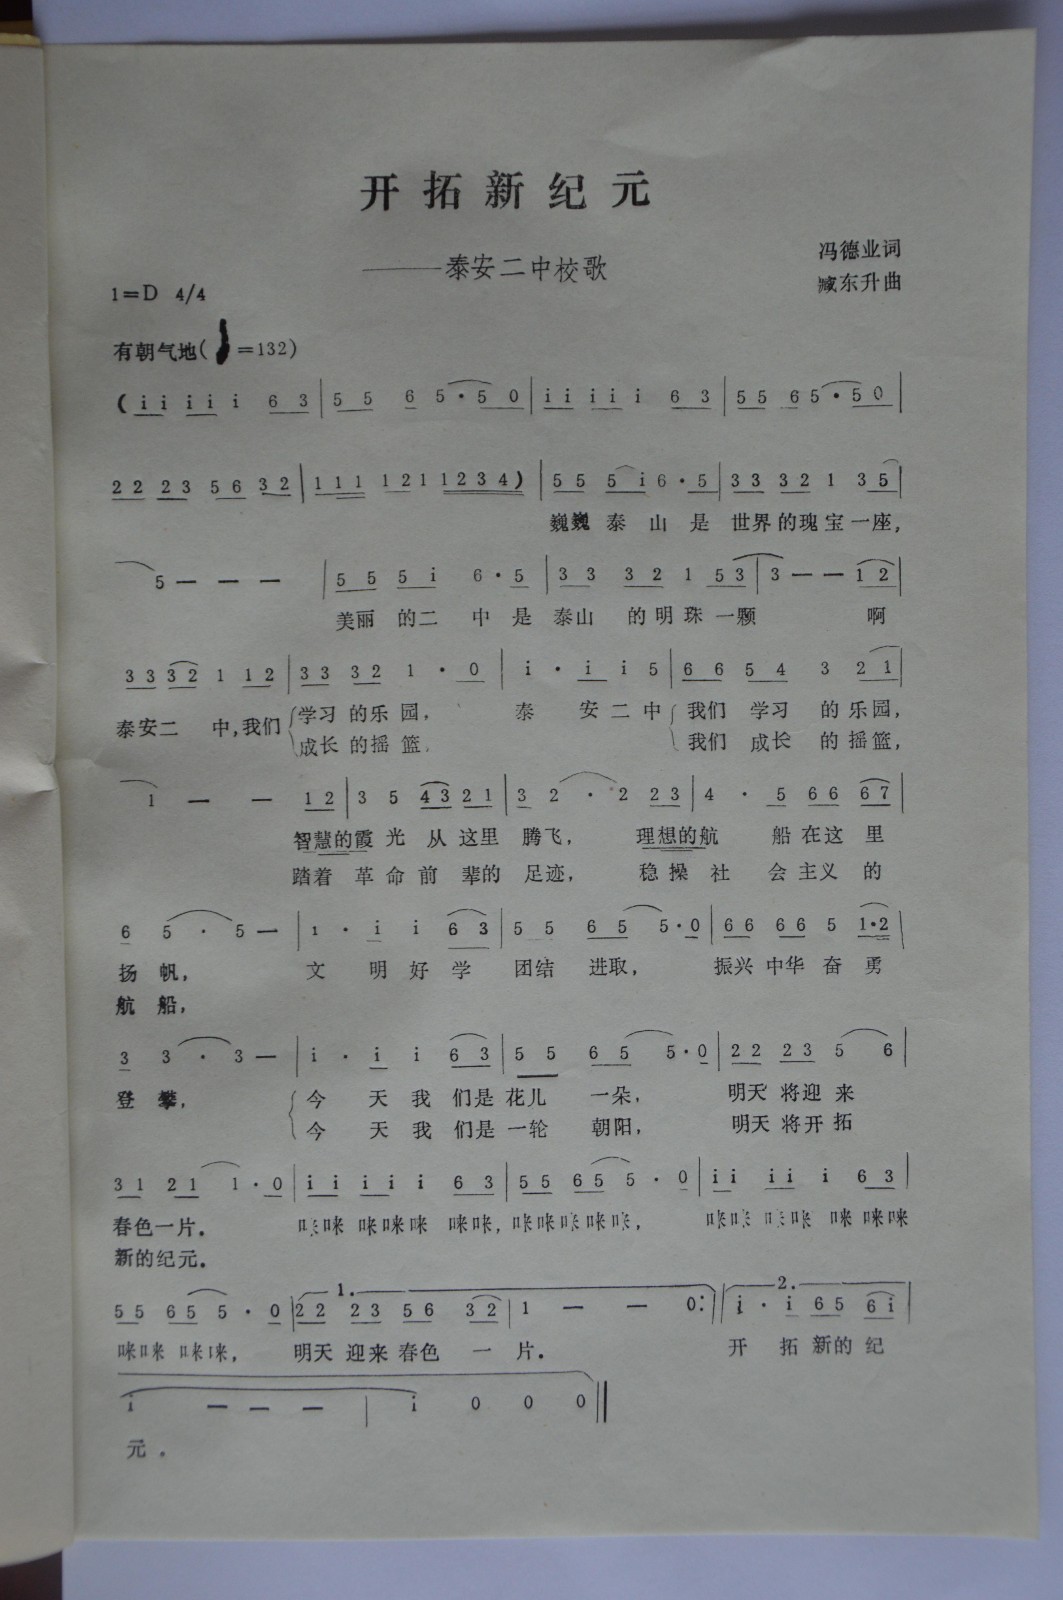 开拓新纪元
———泰安二中校歌
冯德业词
1=D 4/4
臧东升曲
有朝气地( =132)
(i i i i i 6 3 | 5 5 6 5·5 0 | i i i i i 6 3 | 5 5 6 5·5 0 |
2 2 2 3 5 6 3 2 | 1 1 1 1 2 1 1 2 3 4) | 5 5 5 i 6·5 | 3 3 3 2 1 3 5 |
巍巍泰山是世界的瑰宝一座,
5 — — — | 5 5 5 i 6·5 | 3 3 3 2 1 5 3 | 3 — — 1 2 |
美丽的二中是泰山的明珠一颗 啊
3 3 3 2 1 1 2 | 3 3 3 2 1·0 | i·i i 5 | 6 6 5 4 3 2 1 |
泰安二中,我们{学习的乐园, 泰安二中{我们学习的乐园,
成长的摇篮, 我们成长的摇篮,
1 — — 1 2 | 3 5 4 3 2 1 | 3 2·2 2 3 | 4·5 6 6 6 7 |
智慧的霞光从这里腾飞, 理想的航船在这里
踏着革命前辈的足迹, 稳操社会主义的
6 5·5 — | 1·i i 6 3 | 5 5 6 5 5·0 | 6 6 6 6 5 1·2 |
扬帆, 文明好学团结进取, 振兴中华奋勇
航船,
3 3·3 — | i·i i 6 3 | 5 5 6 5 5·0 | 2 2 2 3 5 6 |
登攀, {今天我们是花儿一朵, 明天将迎来
今天我们是一轮朝阳, 明天将开拓
3 1 2 1 1·0 | i i i i i 6 3 | 5 5 6 5 5·0 | i i i i i 6 3 |
春色一片. 咪咪咪咪咪咪咪,咪咪咪咪咪, 咪咪咪咪咪咪咪
新的纪元.
1. 2.
5 5 6 5 5·0 | 2 2 2 3 5 6 3 2 | 1 — — 0 :|| i·i 6 5 6 i |
咪咪咪咪, 明天迎来春色一片. 开拓新的纪
i — — — | i 0 0 0 ||
元.